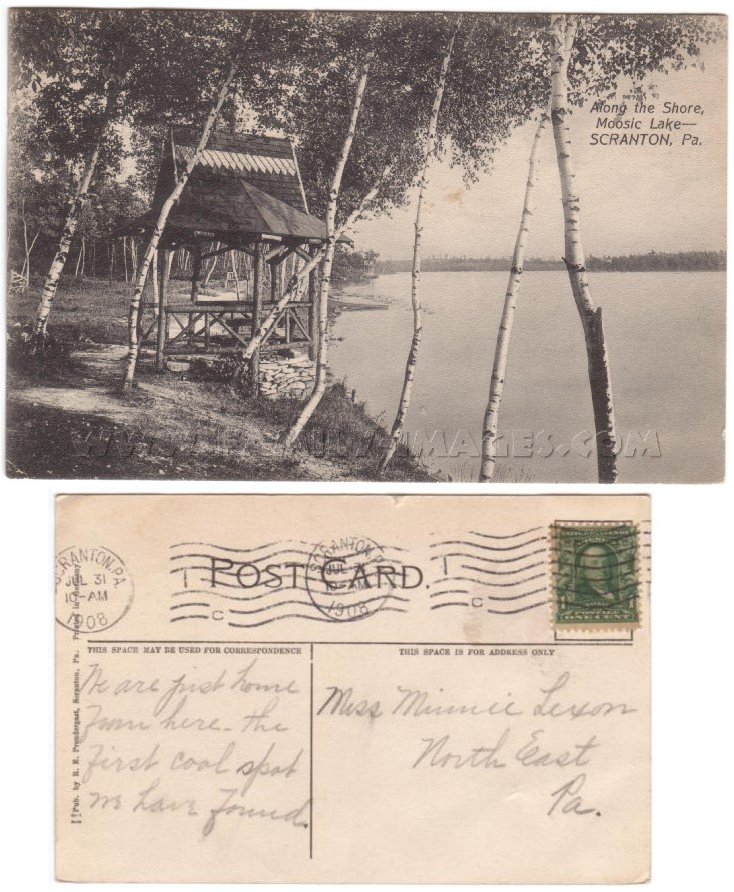 Along the Shore,
Moosic Lake—
SCRANTON, Pa.
SCRANTON, PA.
JUL 31
10-AM
1908
SCRANTON, P
JUL
10-AM
1908
POST CARD.
1
C
1
C
POSTAGE
ONE CENT
THIS SPACE MAY BE USED FOR CORRESPONDENCE
THIS SPACE IS FOR ADDRESS ONLY
We are just home
from here - the
first cool spot
we have found.
Miss Minnie Lexon
North East
Pa.
Pub. by R. E. Prendergast, Scranton, Pa. Printed in Germany